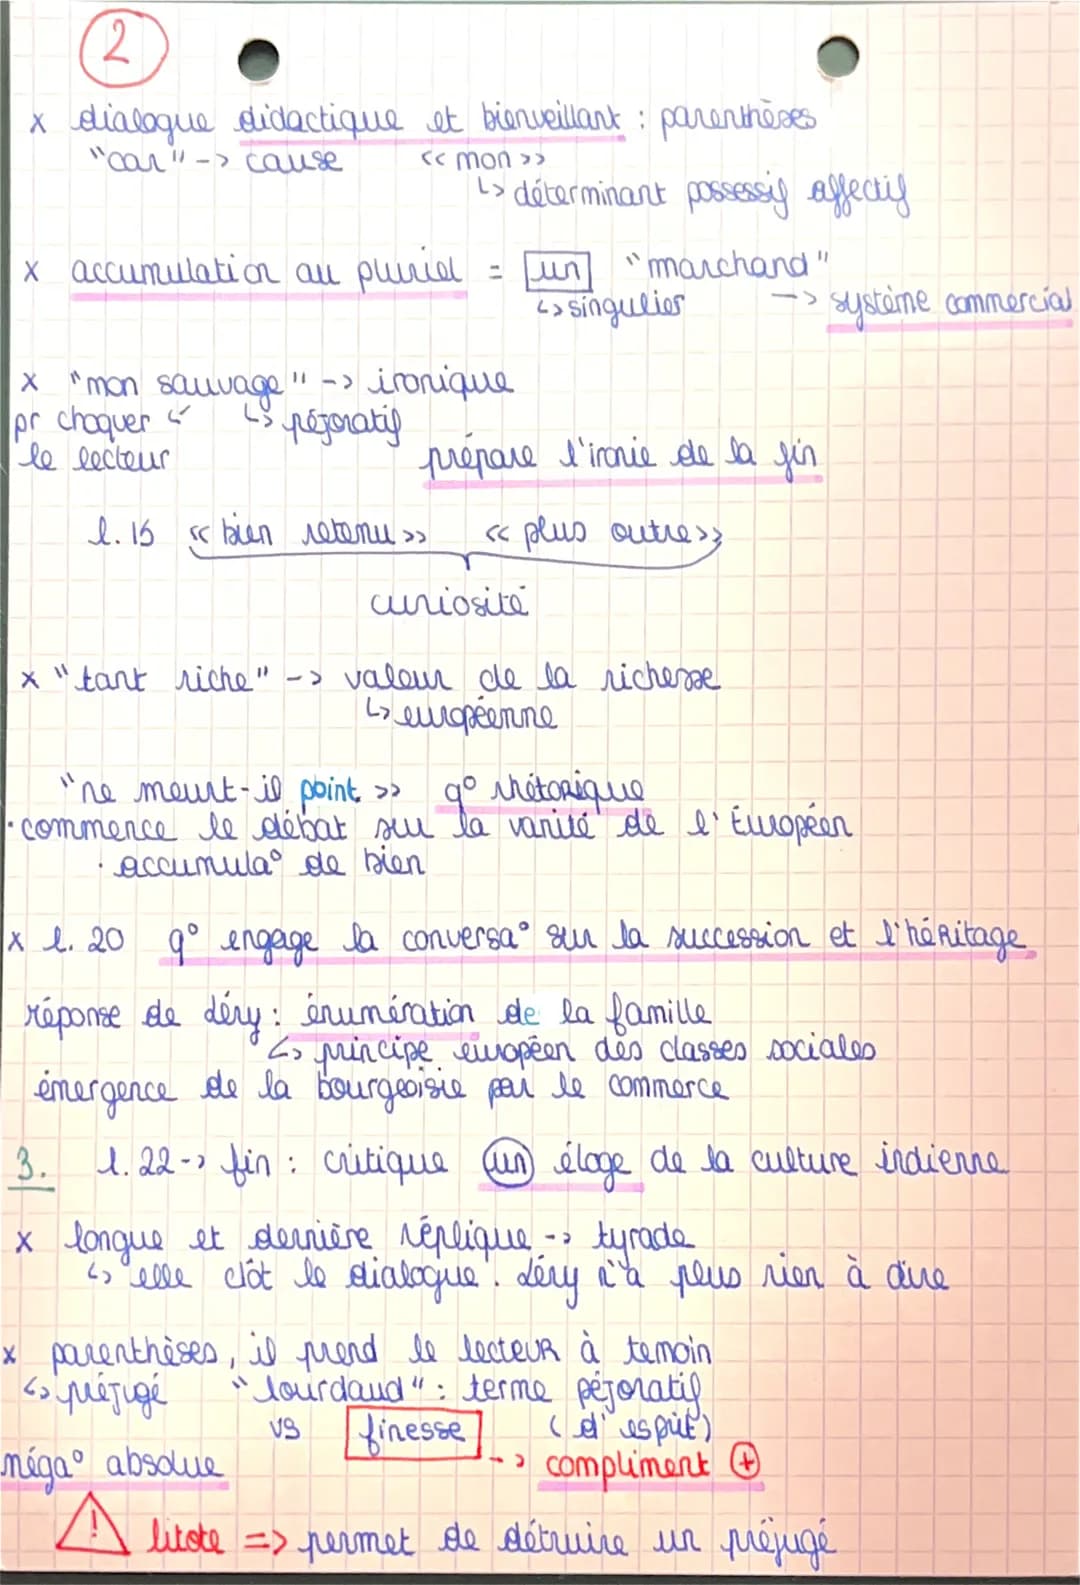 2
x dialogue didactique et bienveillant : parenthèses
"car" -> cause << mon >>
↳ déterminant possessif affectif
x accumulation au pluriel = un "marchand"
↳ singulier -> système commercial
x "mon sauvage" -> ironique
pr choquer ↙ ↳ péjoratif
le lecteur
prépare l'ironie de la fin
l. 15 << bien retenu >> << plus outre >>
curiosité
x "tant riche" -> valeur de la richesse
↳ européenne
"ne meurt-il point >> q° rhétorique
· commence le débat sur la vanité de l'Européen
· accumula° de bien
x l. 20 q° engage la conversa° sur la succession et l'héritage
réponse de Léry : énumération de la famille
↳ principe européen des classes sociales
émergence de la bourgeoisie par le commerce
3. l. 22 -> fin : critique un éloge de la culture indienne
x longue et dernière réplique -> tyrade
↳ elle clôt le dialogue. Léry n'a plus rien à dire
x parenthèses, il prend le lecteur à temoin
↳ préjugé "lourdaud" : terme péjoratif
vs finesse (d'esprit)
néga° absolue -> compliment +
! litote => permet de détruire un préjugé